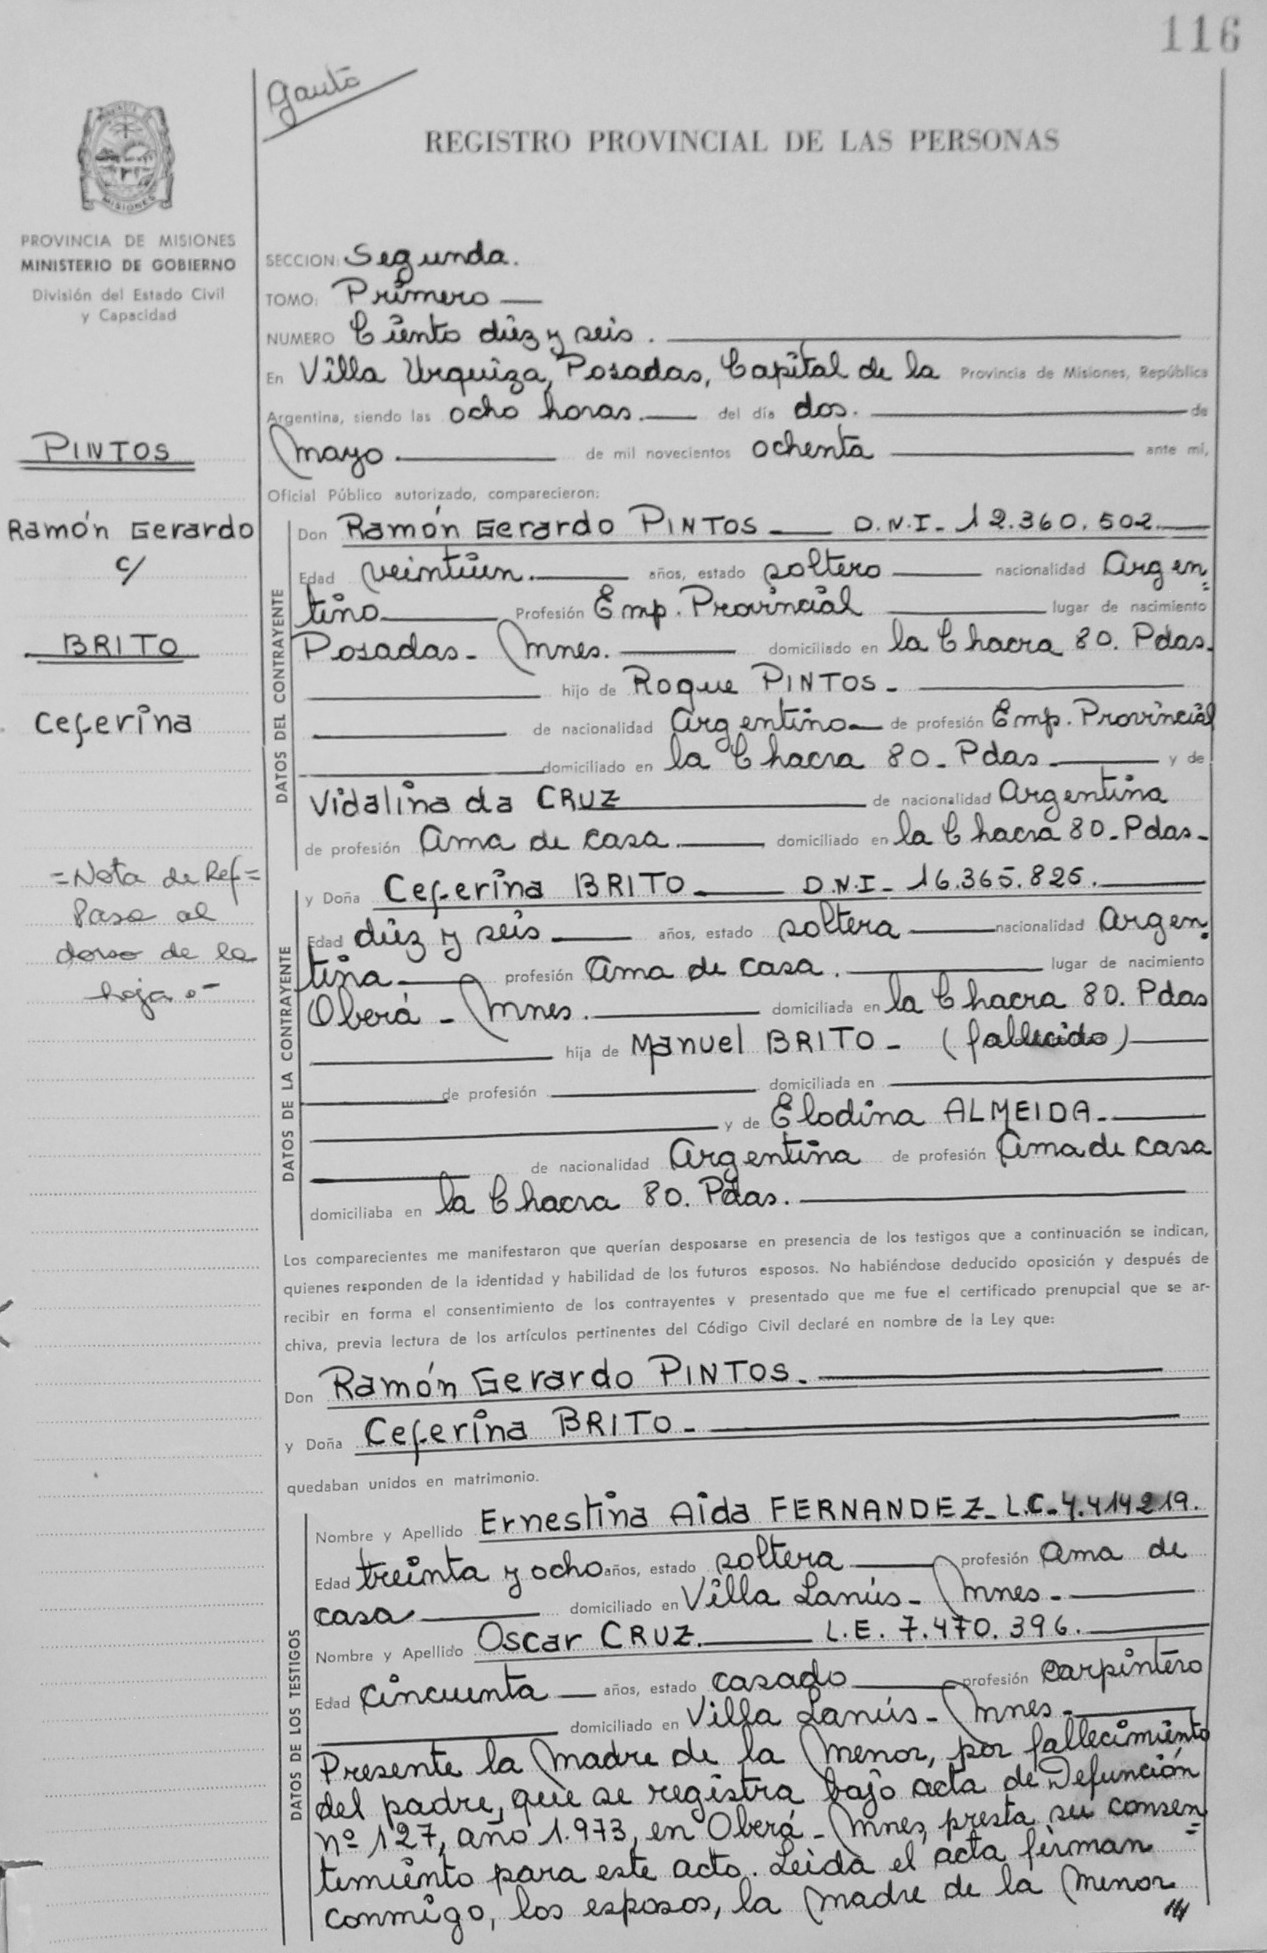 116
Gauto
REGISTRO PROVINCIAL DE LAS PERSONAS
MISIONES
PROVINCIA DE MISIONES
MINISTERIO DE GOBIERNO
División del Estado Civil
y Capacidad
PINTOS
Ramón Gerardo
c/
BRITO
Ceferina
=Nota de Ref=
Pasa al
dorso de la
hoja.-
SECCION: Segunda.
TOMO: Primero
NUMERO Ciento diez y seis.
En Villa Urquiza, Posadas, Capital de la Provincia de Misiones, República
Argentina, siendo las ocho horas. del día dos. de
mayo de mil novecientos ochenta ante mi,
Oficial Público autorizado, comparecieron:
DATOS DEL CONTRAYENTE
Don Ramón Gerardo PINTOS D.N.I- 12.360.502.
Edad veintiun. años, estado soltero nacionalidad Argen=
tino Profesión Emp. Provincial lugar de nacimiento
Posadas- Mnes. domiciliado en la Chacra 80. Pdas.
hijo de Roque PINTOS-
de nacionalidad Argentino de profesión Emp. Provincial
domiciliado en la Chacra 80- Pdas. y de
Vidalina da CRUZ de nacionalidad Argentina
de profesión Ama de casa. domiciliado en la Chacra 80-Pdas-
DATOS DE LA CONTRAYENTE
y Doña Ceferina BRITO D.N.I- 16.365.825.
Edad diez y seis años, estado soltera nacionalidad Argen=
tina profesión Ama de casa. lugar de nacimiento
Oberá - Mnes. domiciliada en la Chacra 80. Pdas
hija de Manuel BRITO - (fallecido)
de profesión domiciliada en
y de Elodina ALMEIDA.
de nacionalidad Argentina de profesión Ama de casa
domiciliaba en la Chacra 80. Pdas.
Los comparecientes me manifestaron que querían desposarse en presencia de los testigos que a continuación se indican,
quienes responden de la identidad y habilidad de los futuros esposos. No habiéndose deducido oposición y después de
recibir en forma el consentimiento de los contrayentes y presentado que me fue el certificado prenupcial que se ar-
chiva, previa lectura de los artículos pertinentes del Código Civil declaré en nombre de la Ley que:
Don Ramón Gerardo PINTOS.
y Doña Ceferina BRITO-
quedaban unidos en matrimonio.
DATOS DE LOS TESTIGOS
Nombre y Apellido Ernestina Aida FERNANDEZ- L.C-4.414219.
Edad treinta y ocho años, estado soltera profesión Ama de
casa domiciliado en Villa Lanús- Mnes-
Nombre y Apellido Oscar CRUZ. L.E. 7.470.396.
Edad Cincuenta años, estado casado profesión Carpintero
domiciliado en Villa Lanús- Mnes-
Presente la Madre de la Menor, por fallecimiento
del padre, que se registra bajo acta de Defunción
nº 127, año 1.973, en Oberá - Mnes, presta su consen=
timiento para este acto. Leida el acta firman
conmigo, los esposos, la Madre de la Menor